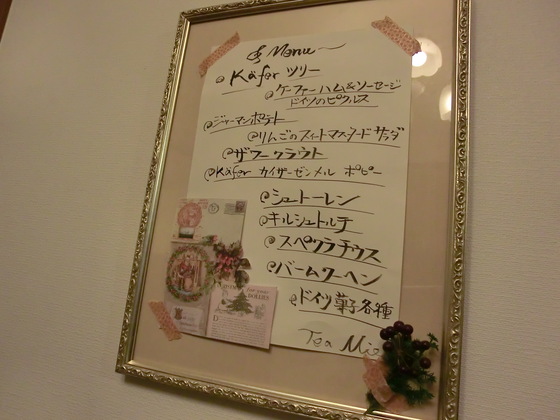 Menu
Käfer ツリー
ケーファーハム&ソーセージ
ドイツのピクルス
ジャーマンポテト
りんごのスイートマスタードサラダ
ザワークラウト
Käfer カイザーゼンメル ポピー
シュトーレン
キルシュトルテ
スペクラチウス
バームクーヘン
ドイツ菓子各種
Tea Mie